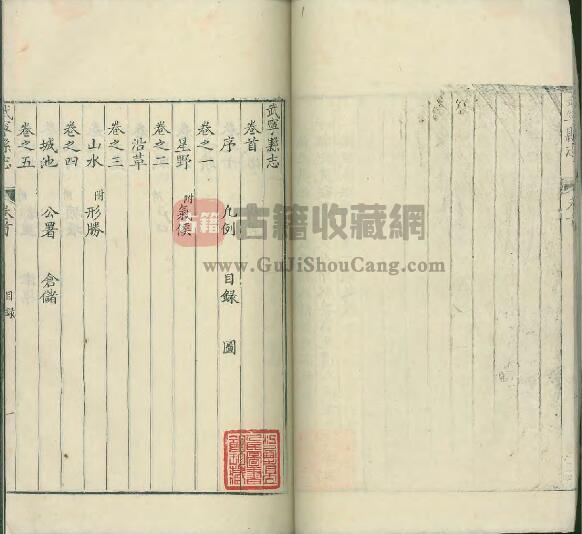 武寧縣志
卷首
序 凡例 目録 圖
卷之一
星野 附氣侯
卷之二
沿革
卷之三
山水 附形勝
卷之四
城池 公署 倉儲
卷之五
武寧縣志 卷首 目録
古籍
古籍收藏網
www.GuJiShouCang.com